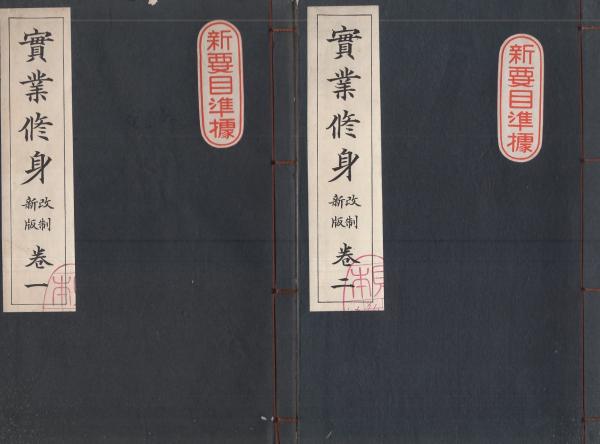 實業修身
改制
新版
卷一
新要目準據
實業修身
改制
新版
卷二
新要目準據
本
見本